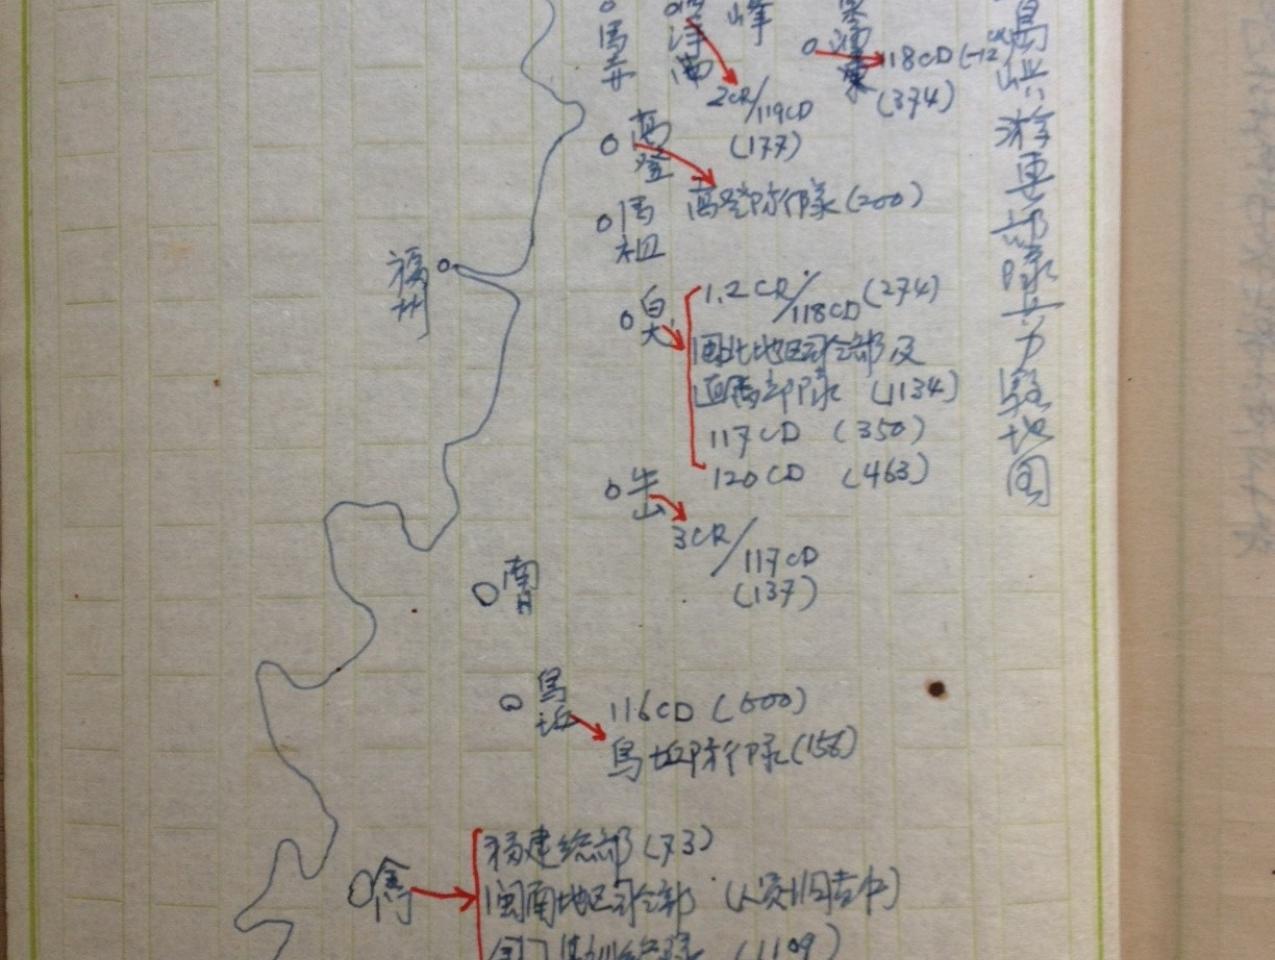 島嶼游擊部隊兵力駐地圖
峰
2CR/119CD
(177)
118CD
(374)
高登
高登防衛隊(200)
馬祖
福州
白犬
1.2CR/118CD(274)
閩北地区司令部及
直屬部隊 (1134)
117CD (350)
120CD (463)
牛山
3CR/117CD
(137)
南日
烏坵
116CD (500)
烏坵防衛隊(158)
金門
福建総部(73)
閩南地区司令部
(1109)